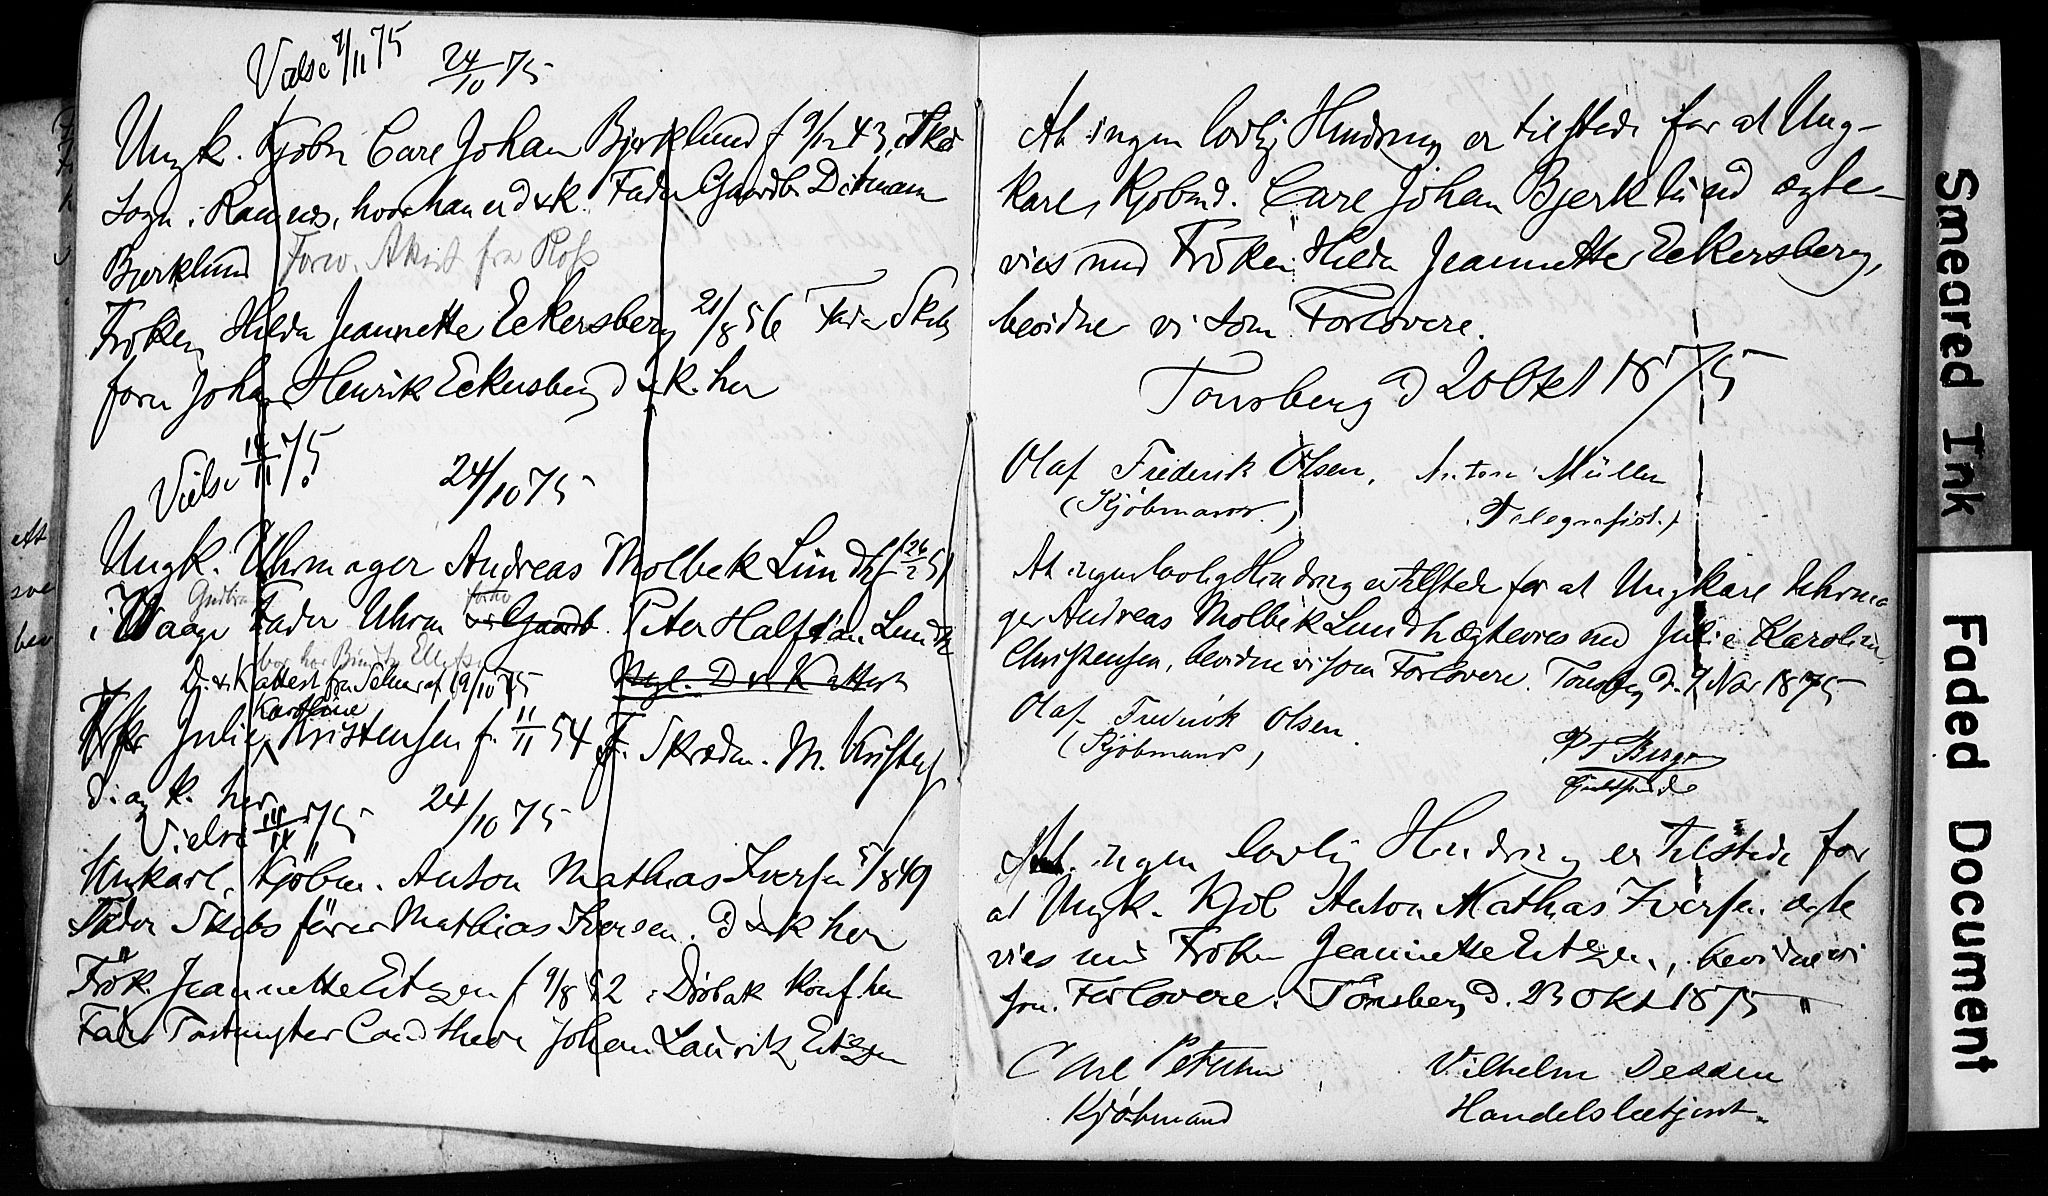 Vielse 7/11 75 24/10 75
Ungk. Kjøbm Carl Johan Bjerklund f 9/12 43, i Skee
Sogn i Ranœs, hvor han er d & k. Fader Gaardbr Ditman
Bjerklund Forv. Attest fra
Fröken Hilda Jeannette Eckersberg 21/8 56 Fader Skibs
förer Johan Henrik Eckersberg d & k. her
Vielse 14/11 75 24/10 75
Ungk. Uhrmager Andreas Molbek Lundh f 26/2 51
i Waage Fader Uhrm Gaardb. Peter Halfdan Lundh
D. & K attest fra 19/10 75 Mgl. D & K attest
Karoline
Julie Kristensen f. 11/11 54 F. Skræder. M. Kristens
d. og k. her
Vielse 14/11 75 24/10 75
Unkarl. Kjöbm. Anton Mathias Iversen 5/8 49
Fader Skibsförer Mathias Iversen. d & k her
Frök. Jeannette Eitzen f 9/8 52 i Dröbak konf. her
Fader Postmester Cand theol Johan Lauritz Eitzen
At ingen lovlig Hindring er tilstede for at Ung-
karl, Kjøbmd. Carl Johan Bjerklund ægte-
vies med Fröken Hilda Jeannette Eckersberg,
bevidner vi som Forlovere.
Tønsberg d 20 Okt 1875
Olaf Frederik Olsen, Anton Müller
(Kjøbmand.) (Telegrafist.)
At ingen lovlig Hindring er tilstede for at Ungkarl Uhrma
ger Andreas Molbek Lundh ægtevies med Julie Karoline
Christensen, bevidne vi som Forlovere. Tønsberg d. 7 Nov 1875
Olaf Frederik Olsen.
(Kjøbmand) P T Berger
At ingen lovlig Hindring er tilstede for
at Ungk. Kjöb Anton Mathias Iversen ægte
vies med Fröken Jeannette Eitzen, bevidne vi
som Forlovere. Tönsberg d. 23 Okt 1875
Carl Petersen Vilhelm Dessen
Kjøbmand Handelsbetjent.
Smeared Ink
Faded Document